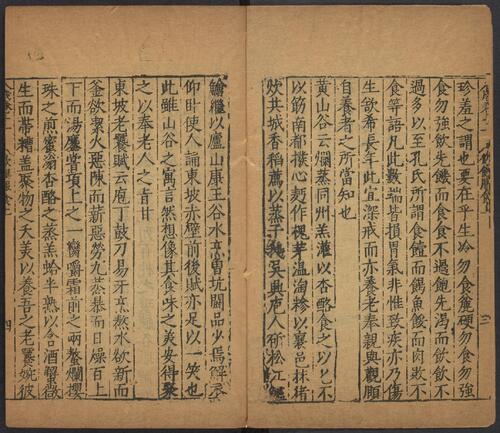 珍羞之謂也要在乎生冷勿食麄硬勿食勿強
食勿強飲先饑而食食不過飽先渴而飲飲不
過多以至孔氏所謂食饐而餲魚餒而肉敗不
食等語凡此數端皆損胃氣非惟致疾亦乃傷
生欲希長年此宜深戒而亦養老奉親與觀頤
自養者之所當知也
黃山谷云爛蒸同州羔灌以杏酪食之以匕不
以筯南都撥心麪作槐芽温淘糝以襄邑抹猪
炊共城香稻薦以蒸子鵝吳興庖人斫松江鱸
鱠繼以廬山康王谷水烹曾坑鬬品少焉解衣
仰卧使人誦東坡赤壁前後賦亦足以一笑也
此雖山谷之寓言然想像其食味之美安得聚
之以奉老人之㫖甘
東坡老饕賦云庖丁鼓刀易牙烹熬水欲新而
釜欲潔火惡陳而薪惡勞九蒸暴而日燥百上
下而湯鏖嘗項上之一臠嚼霜前之兩螯爛櫻
珠之煎蜜滃杏酪之蒸羔蛤半熟以含酒蟹微
生而帶糟蓋聚物之夭美以養吾之老饕婉彼
四